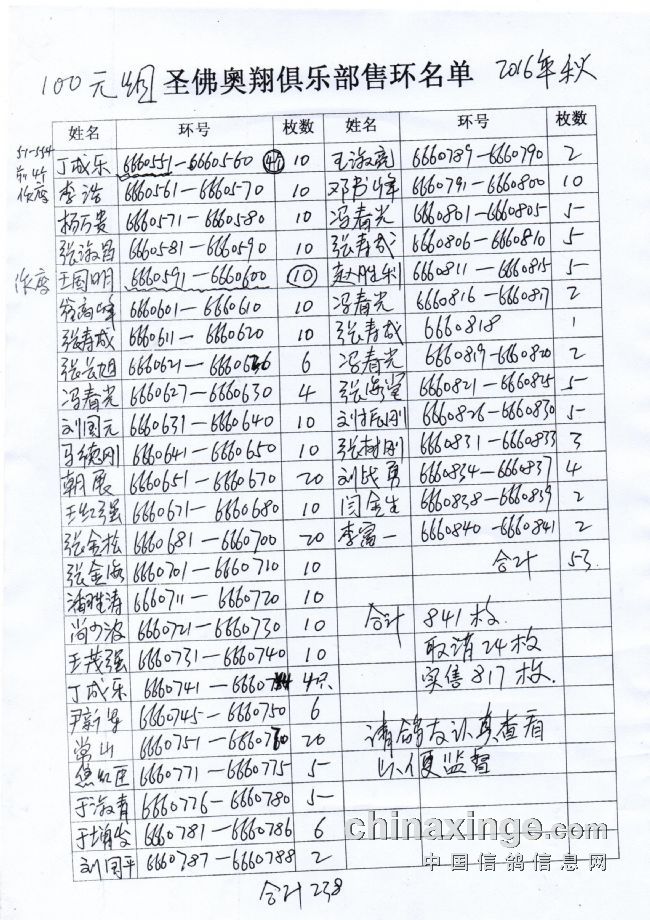 100元组 圣佛奥翔俱乐部售环名单 2016年秋
姓名 环号 枚数 姓名 环号 枚数
51-554
前4个
作废
丁成乐 6660551—6660560 10 王淑亮 6660789—6660790 2
李浩 6660561—6660570 10 邓书峰 6660791—6660800 10
杨万贵 6660571—6660580 10 冯春光 6660801—6660805 5
张淑昌 6660581—6660590 10 张寿成 6660806—6660810 5
作废 王国明 6660591—6660600 10 赵胜利 6660811—6660815 5
6660601—6660610 10 冯春光 6660816—6660817 2
张寿成 6660611—6660620 10 张寿成 6660818 1
张长旭 6660621—6660626 6 冯春光 6660819—6660820 2
冯春光 6660627—6660630 4 张海堂 6660821—6660825 5
刘国元 6660631—6660640 10 刘振刚 6660826—6660830 5
马德刚 6660641—6660650 10 张树刚 6660831—6660833 3
朝展 6660651—6660670 20 刘战勇 6660834—6660837 4
王红强 6660671—6660680 10 闫金生 6660838—6660839 2
张金松 6660681—6660700 20 李富一 6660840—6660841 2
张金海 6660701—6660710 10 合计 53
潘胜涛 6660711—6660720 10
尚少波 6660721—6660730 10 合计 841枚.
王茂强 6660731—6660740 10 取消24枚
丁成乐 6660741—6660744 4只 实售817枚.
尹新华 6660745—6660750 6
常山 6660751—6660770 20 请鸽友认真查看
焦红臣 6660771—6660775 5 以便监督
于淑青 6660776—6660780 5
于增发 6660781—6660786 6
刘国平 6660787—6660788 2
合计238
chinaxinge.com
中国信鸽信息网